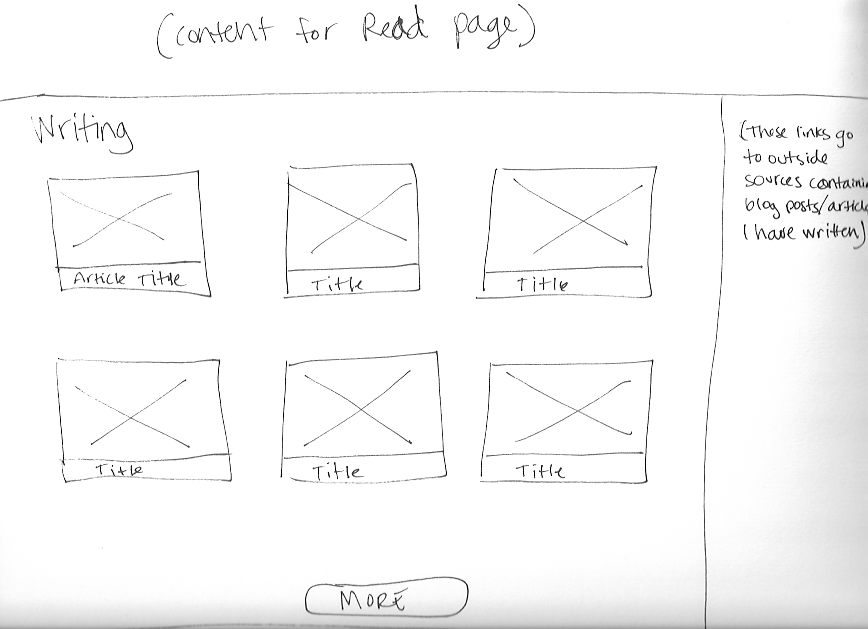 (content for Read page)
Writing
Article Title
Title
Title
Title
Title
Title
MORE
(These links go
to outside
sources containi
blog posts/article
I have written)